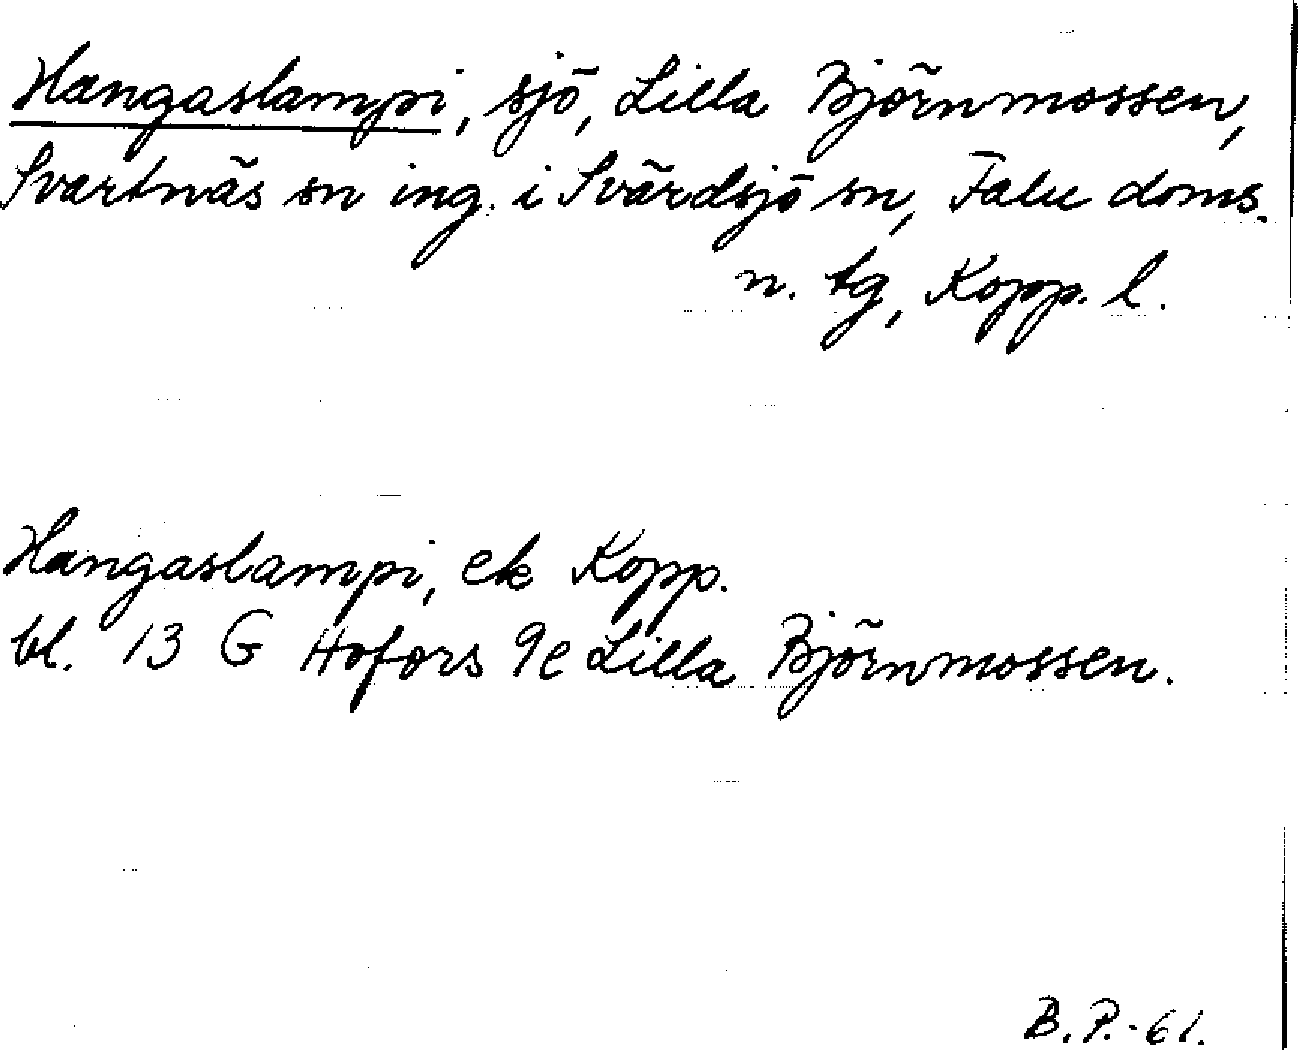 Hangaslampi, sjö, Lilla Björnmossen,
Svartnäs sn ing. i Svärdsjö sn, Falu doms.
n. tg, Kopp. l.
Hangaslampi, ek Kopp.
bl. 13 G Hofors 9e Lilla Björnmossen.
B.P.-61.